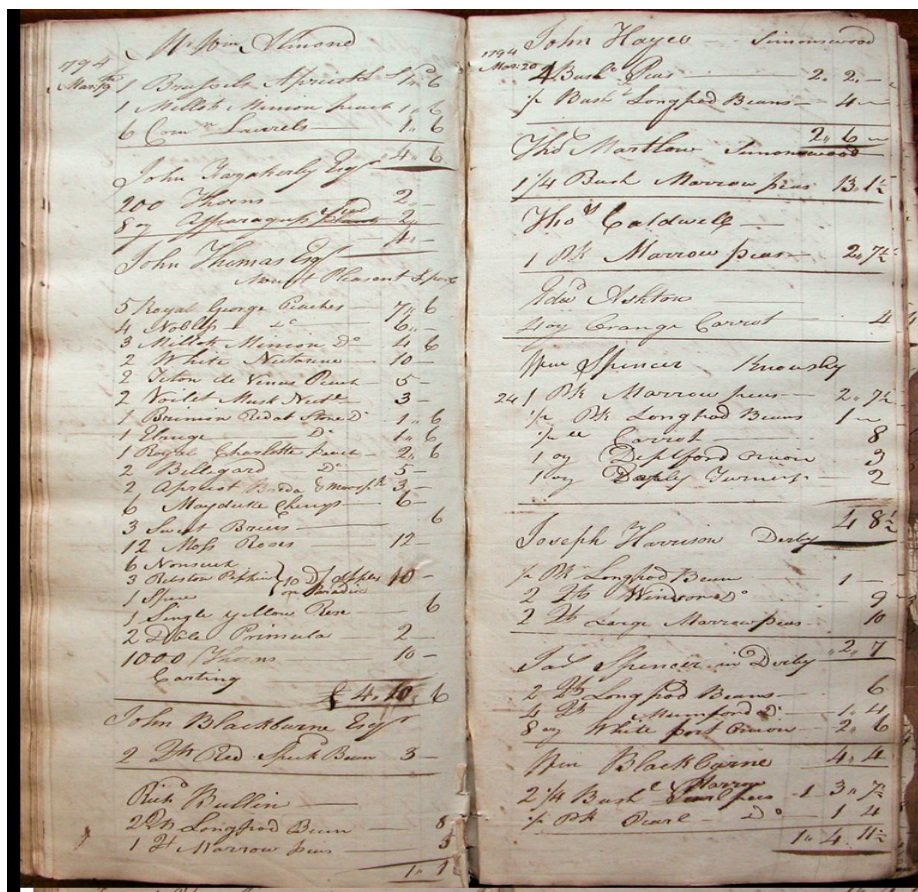 1794
Mr Wm Almond
Mar: 19
1 Brussels Apricot 1 6
1 Millet Minion peach 1 „ 6
6 Comn Laurels 1 „ 6
4 „ 6
John Esqr
200 Thorns 2 „ –
8 oz Asparagus Seed 2 „
4 „ –
John Thomas Esqr
Mount Pleasant Lpool
5 Royal George Peaches 7 „ 6
4 Nobless Do 6 „ –
3 Millet Minion Do 4 6
2 White Nectarine 10 –
2 Teton de Venus Peach 5 –
2 Voilet Musk Nectn 3 –
1 Red at Stone Do 1 „ 6
1 Elruge Do 1 „ 6
1 Royal Charlotte peach 2 „ 6
2 Bellegard Do 5 –
2 Apricot Breda & 3 –
6 Mayduke Cherrys 6 –
3 Sweet Briers 6
12 Moss Roses 12 –
6 Nonsuch
3 Ribston Pippin } 10 Df Apples 10 –
1 on Paradice
1 Single yellow Rose 6
2 Dble Primula 2 –
1000 Thorns 10 –
Carting
£ 4 „ 10 6
John Blackburne Esqr
2 Qts Red Speck Bean 3 –
Richd Bullin
2 Qts Longpod Bean 8
1 Qt Marrow peas 5
1 „ 1
1794
John Hayes Simonswood
Mar: 20
4 Bushl Peas 2 „ 2 „ –
½ Bushl Longpod Beans 4 „ –
2 „ 6 –
Thos Martlow Simonswood
1 1/4 Bush Marrow peas 13 „ 1½
Thos Caldwell
1 Pk Marrow peas 2 „ 7½
Edwd Ashton
4 oz Orange Carrot 4
Wm Spencer Knowsley
24 1 Pk Marrow peas 2 „ 7½
½ Pk Longpod Beans 1 „ –
½ Carrot 8
1 oz Deptford onion 3
1 oz Turnep 2
4 8½
Joseph Harrison Derby
½ Pk Longpod Bean 1 –
2 Qts Windsor Do 9
2 Qts Large Marrow peas 10
2 „ 7
Jas Spencer in Derby
2 Qts Longpod Beans 6
4 Qts Mumford Do 1 „ 4
8 oz White port Onion 2 „ 6
4 „ 4
Wm Blackburne
2 1/4 Bushl Marrow peas 1 3 „ 7½
½ Pk Pearl Do 1 4
1 „ 4 11½